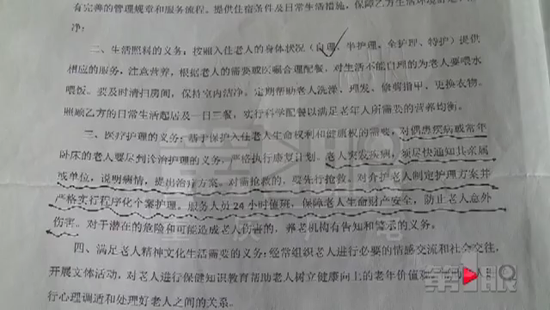 有完善的管理规章和服务流程。提供住宿条件及日常生活措施,保障乙方生活环境
净;
二、生活照料的义务:按照入住老人的身体状况(自理、半护理、全护理、特护)提供
相应的服务,注意营养,根据老人的需要或医嘱合理配餐,对生活不能自理的为老人要喂水
喂饭。要及时清扫房间,保持室内洁净,定期帮助老人洗澡、理发、修剪指甲、更换衣物。
照顾乙方的日常生活起居及一日三餐,实行科学配餐以满足老年人所需要的营养均衡。
三、医疗护理的义务:基于保护入住老人生命权利和健康权的需要,对偶患疾病或常年
卧床的老人要尽到诊治护理的义务。严格执行康复计划,老人突发疾病,须尽快通知其亲属
或单位,说明病情,提出治疗方案。对需抢救的,要先行抢救。对介护老人制定护理方案并
严格实行程序化个案护理。服务人员24小时值班,保障老人生命财产安全,防止老人意外
伤害。对于潜在的危险和可能造成老人伤害的,养老机构有告知和警示的义务。
四、满足老人精神文化生活需要的义务:经常组织老人进行必要的情感交流和社会交往,
开展文体活动,对老人进行保健知识教育帮助老人树立健康向上的老年价值观
行心理调适和处理好老人之间的关系。